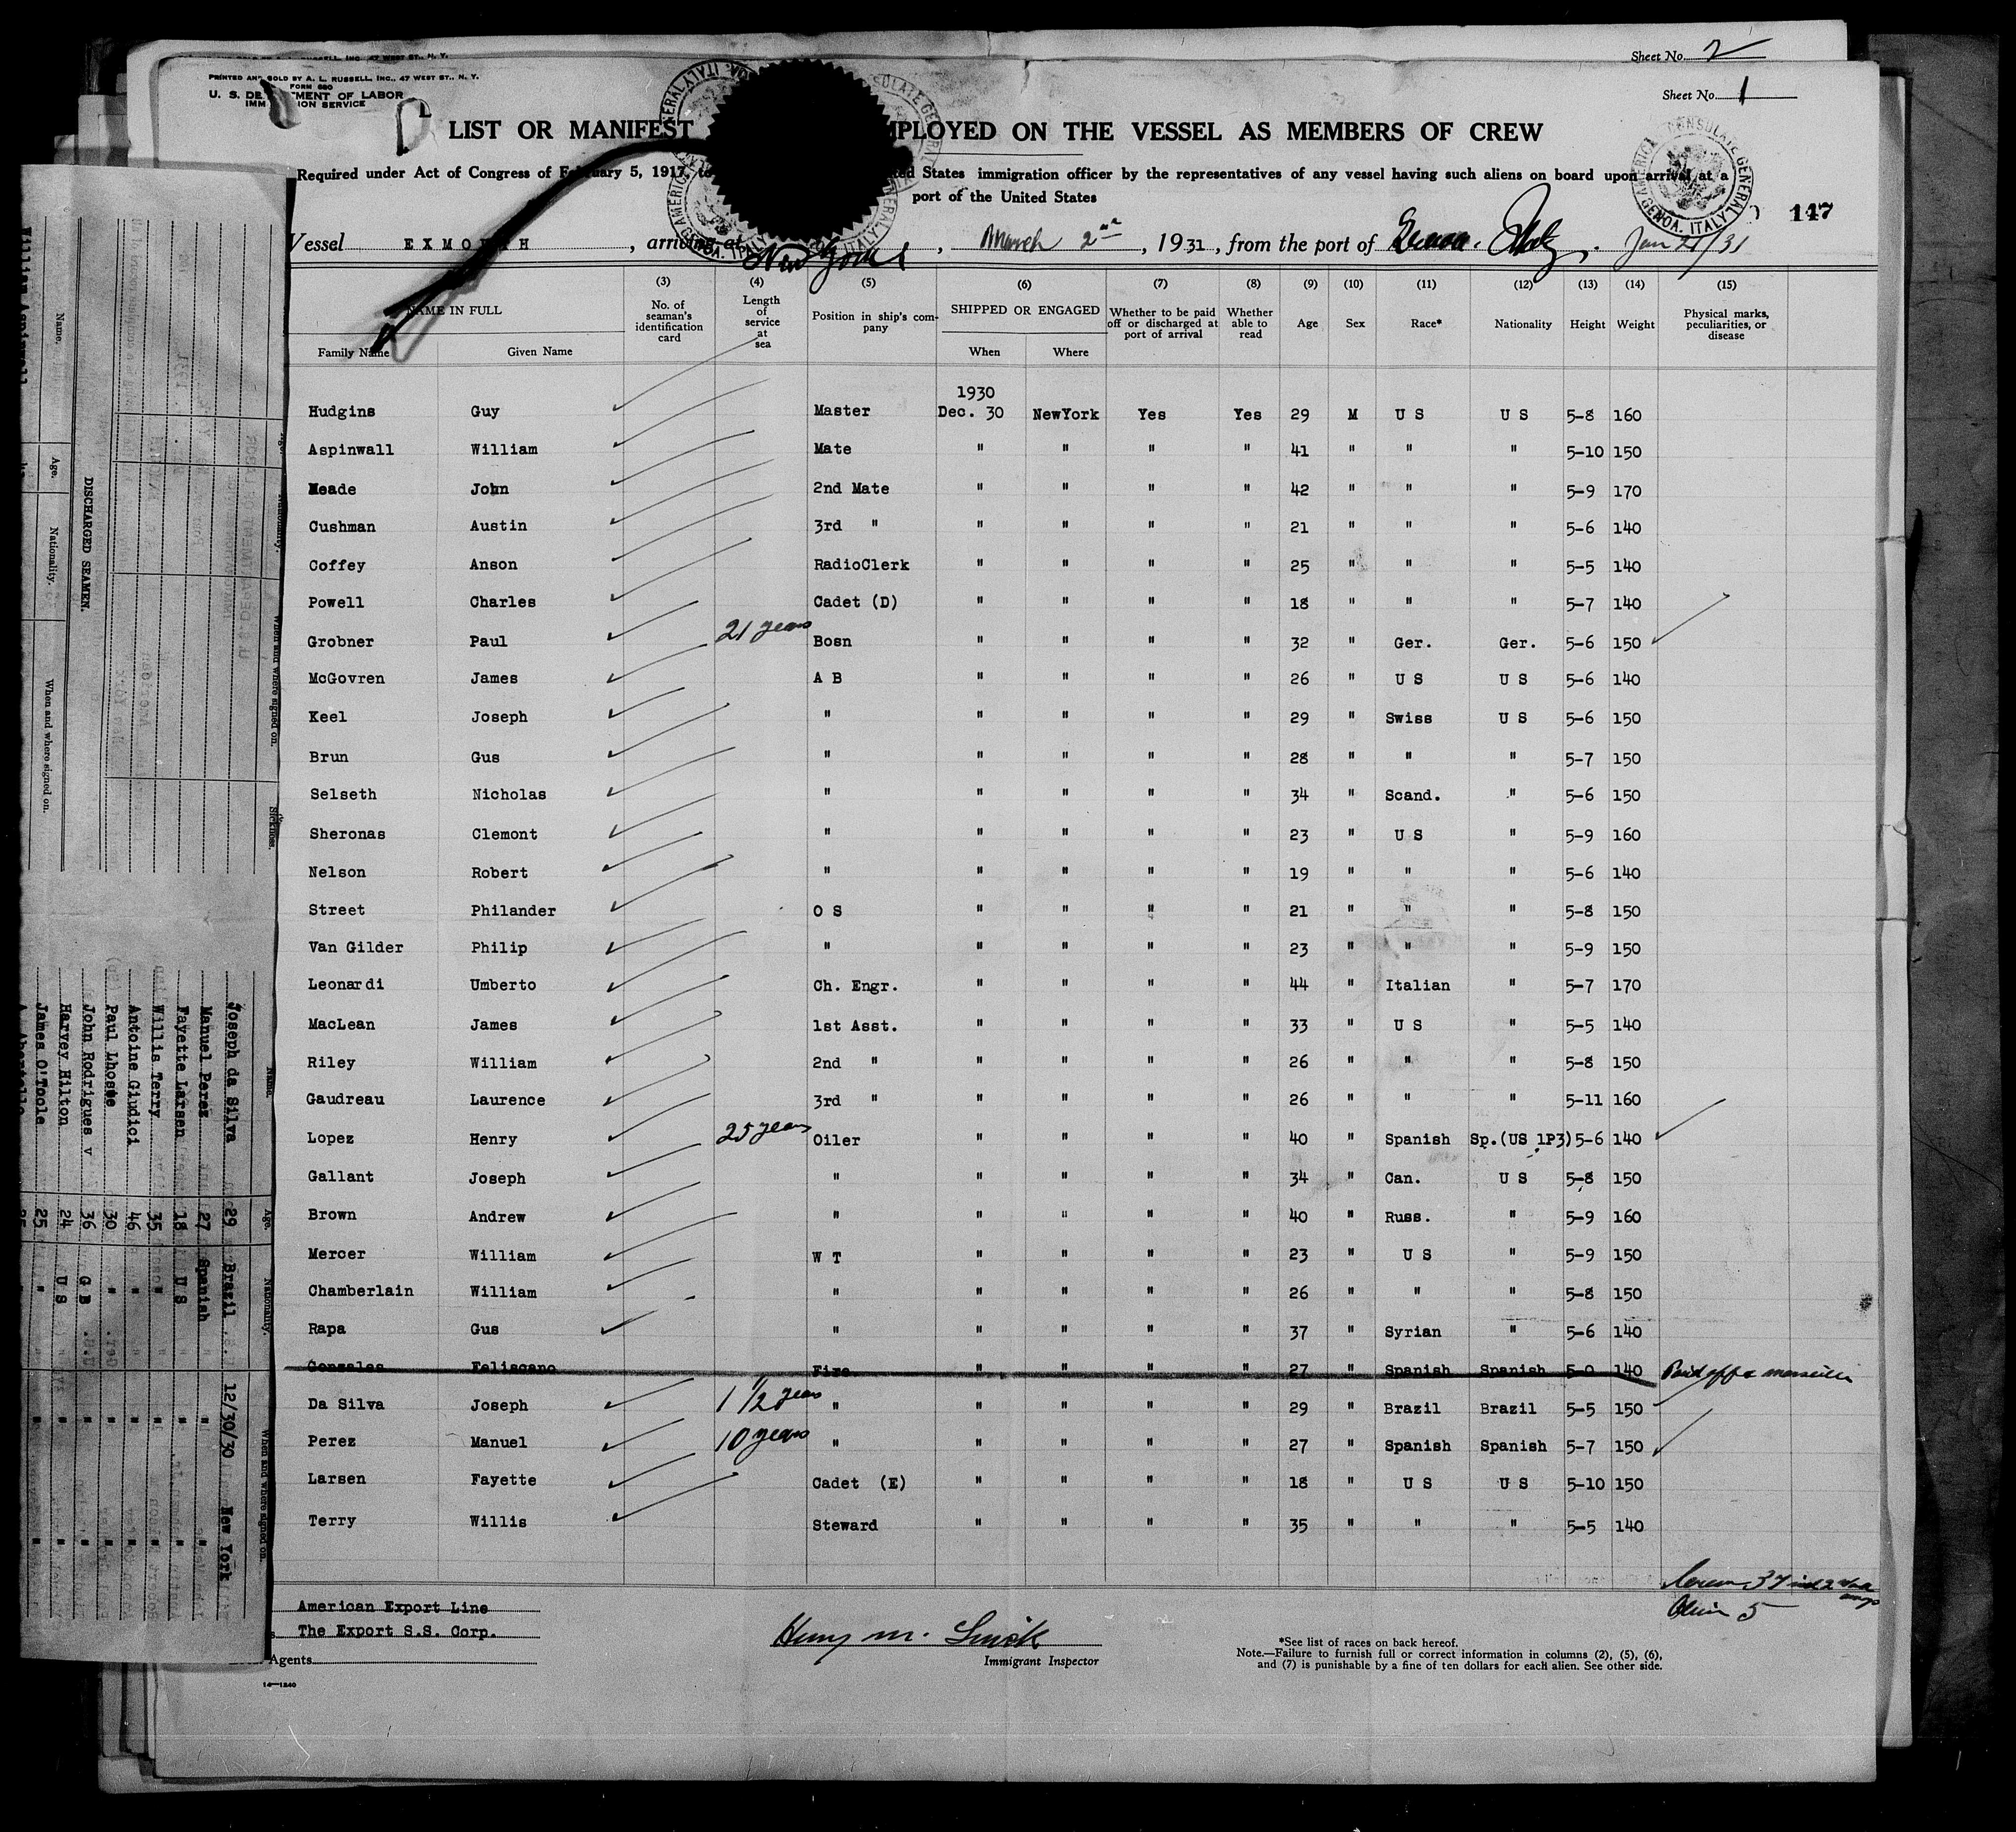 Sheet No. 2
PRINTED AND SOLD BY A. L. RUSSELL, INC., 47 WEST ST., N. Y.
FORM 680
U. S. DE TMENT OF LABOR
IMM ION SERVICE
Sheet No. 1
LIST OR MANIFEST MPLOYED ON THE VESSEL AS MEMBERS OF CREW
Required under Act of Congress of February 5, 1917, to ed States immigration officer by the representatives of any vessel having such aliens on board upon arrival at a
port of the United States
GENOA, ITALY
147
Vessel EXMOUTH, arriving at New York, March 2nd, 1931, from the port of Genoa, Italy. Jan 21/31
NAME IN FULL (3) No. of seaman's identification card (4) Length of service at sea (5) Position in ship's company (6) SHIPPED OR ENGAGED (7) Whether to be paid off or discharged at port of arrival (8) Whether able to read (9) Age (10) Sex (11) Race* (12) Nationality (13) Height (14) Weight (15) Physical marks, peculiarities, or disease
Family Name Given Name When Where
1930
Hudgins Guy Master Dec. 30 NewYork Yes Yes 29 M U S U S 5-8 160
Aspinwall William Mate " " " " 41 " " " 5-10 150
Meade John 2nd Mate " " " " 42 " " " 5-9 170
Cushman Austin 3rd " " " " " 21 " " " 5-6 140
Coffey Anson RadioClerk " " " " 25 " " " 5-5 140
Powell Charles Cadet (D) " " " " 18 " " " 5-7 140
Grobner Paul 21 years Bosn " " " " 32 " Ger. Ger. 5-6 150
McGovren James A B " " " " 26 " U S U S 5-6 140
Keel Joseph " " " " " 29 " Swiss U S 5-6 150
Brun Gus " " " " " 28 " " " 5-7 150
Selseth Nicholas " " " " " 34 " Scand. " 5-6 150
Sheronas Clemont " " " " " 23 " U S " 5-9 160
Nelson Robert " " " " " 19 " " " 5-6 140
Street Philander O S " " " " 21 " " " 5-8 150
Van Gilder Philip " " " " " 23 " " " 5-9 150
Leonardi Umberto Ch. Engr. " " " " 44 " Italian " 5-7 170
MacLean James 1st Asst. " " " " 33 " U S " 5-5 140
Riley William 2nd " " " " " 26 " " " 5-8 150
Gaudreau Laurence 3rd " " " " " 26 " " " 5-11 160
Lopez Henry 25 years Oiler " " " " 40 " Spanish Sp.(US 1P3) 5-6 140
Gallant Joseph " " " " " 34 " Can. U S 5-8 150
Brown Andrew " " " " " 40 " Russ. " 5-9 160
Mercer William W T " " " " 23 " U S " 5-9 150
Chamberlain William " " " " " 26 " " " 5-8 150
Rapa Gus " " " " " 37 " Syrian " 5-6 140
Gonzales Feliscano Fire. " " " " 27 " Spanish Spanish 5-0 140 Paid off a marseille
Da Silva Joseph 1 1/2 years " " " " " 29 " Brazil Brazil 5-5 150
Perez Manuel 10 years " " " " " 27 " Spanish Spanish 5-7 150
Larsen Fayette Cadet (E) " " " " 18 " U S U S 5-10 150
Terry Willis Steward " " " " 35 " " " 5-5 140
American Export Line
The Export S.S. Corp.
Agents
14—1240
Immigrant Inspector
Alien 5
*See list of races on back hereof.
Note.—Failure to furnish full or correct information in columns (2), (5), (6),
and (7) is punishable by a fine of ten dollars for each alien. See other side.
DISCHARGED SEAMEN.
Name. Age. Nationality. When and where signed on.
Name. Age. Nationality. When and where signed on.
Joseph da Silva 29 Brazil 12/30/30 New York
Manuel Perez 27 Spanish " "
Fayette Larsen 18 U S " "
Willis Terry 35 " " "
Antoine Giudici 46 " " "
Paul Lhoste 30 " " "
John Rodrigues v 36 G B " "
Harvey Hilton 24 U S " "
James O'Toole 25 " " "